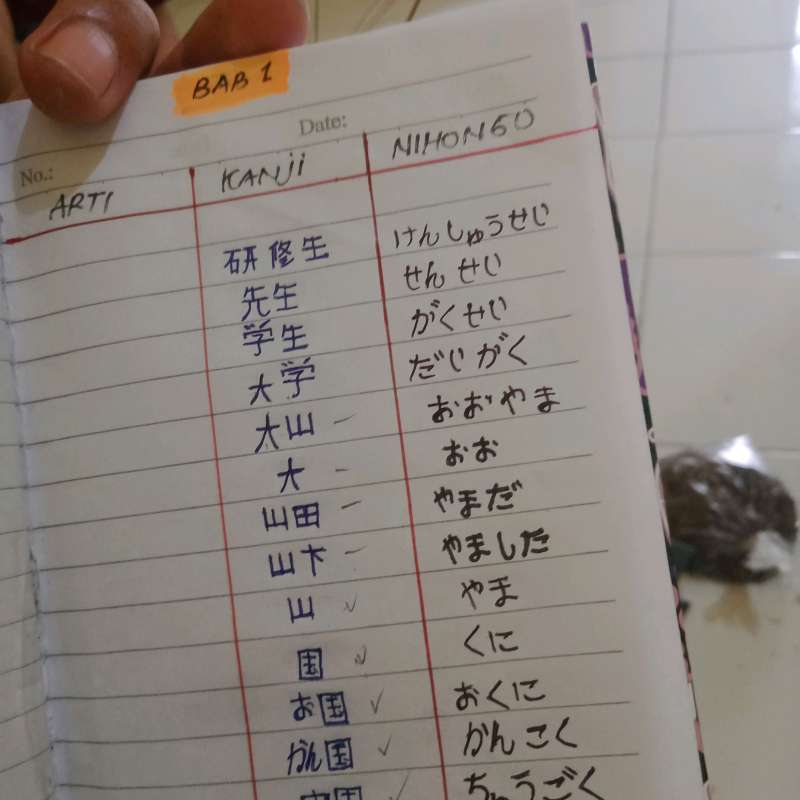 BAB 1
Date:
No.:
ARTI KANJI NIHONGO
研修生 けんしゅうせい
先生 せんせい
学生 がくせい
大学 だいがく
大山 おおやま
大 おお
山田 やまだ
山下 やました
山 やま
国 くに
お国 おくに
かん国 かんこく
中国 ちゅうごく